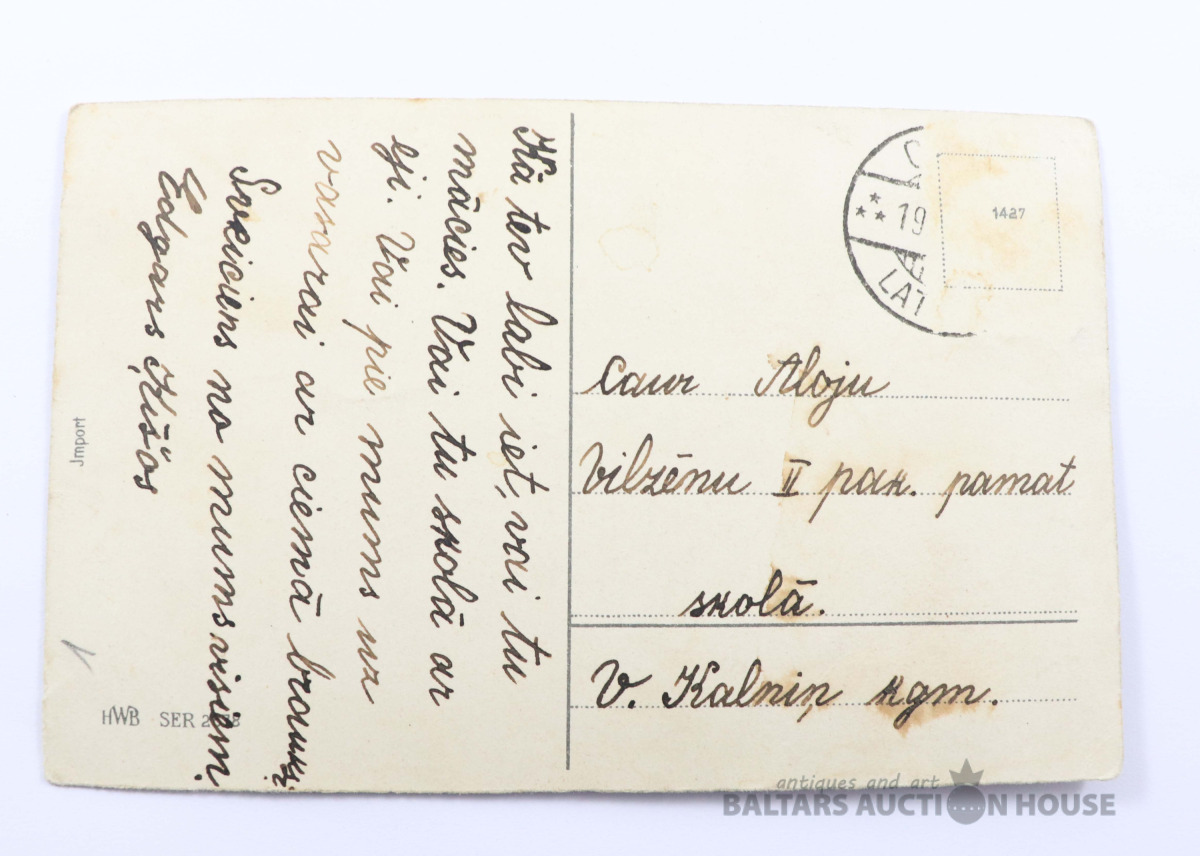 Kā tev labi iet, vai tu
mācies. Vai tu skolā ar
eji. Vai pie mums uz
vasarai ar ciemā brauksi?
Sveiciens no mums visiem.
Edgars
Caur Aloju
Vilzēnu II pak. pamat
skolā.
V. Kalniņ kgm.
19
LAT
1427
Jmport
HWB SER
antiques and art
BALTARS AUCTION HOUSE